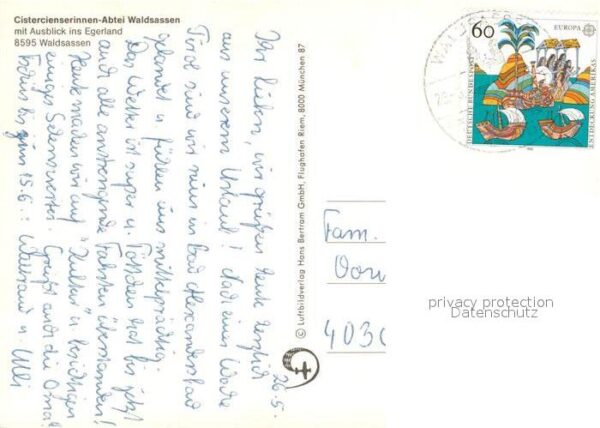 Cistercienserinnen-Abtei Waldsassen
mit Ausblick ins Egerland
8595 Waldsassen
26.5.
Ihr Lieben, wir grüßen heute herzlich
aus unserem Urlaub! Nach einer Woche
Tirol sind wir nun in Bad Alexandersbad
gelandet u. fühlen uns mittelprächtig.
Das Wetter ist super u. Töffchen hat bis jetzt
auch alle anstrengende Fahrten überstanden!
Heute machen wir auf "Kultur" u. besichtigen
einiges Sehenswertes. Grüßt auch die Oma!
Tschüs bis zum 15.6.: Waltraud u. Willi
© Luftbildverlag Hans Bertram GmbH, Flughafen Riem, 8000 München 87
60
EUROPA
DEUTSCHE BUNDESPOST
ENTDECKUNG AMERIKAS
Fam.
4030
privacy protection
Datenschutz